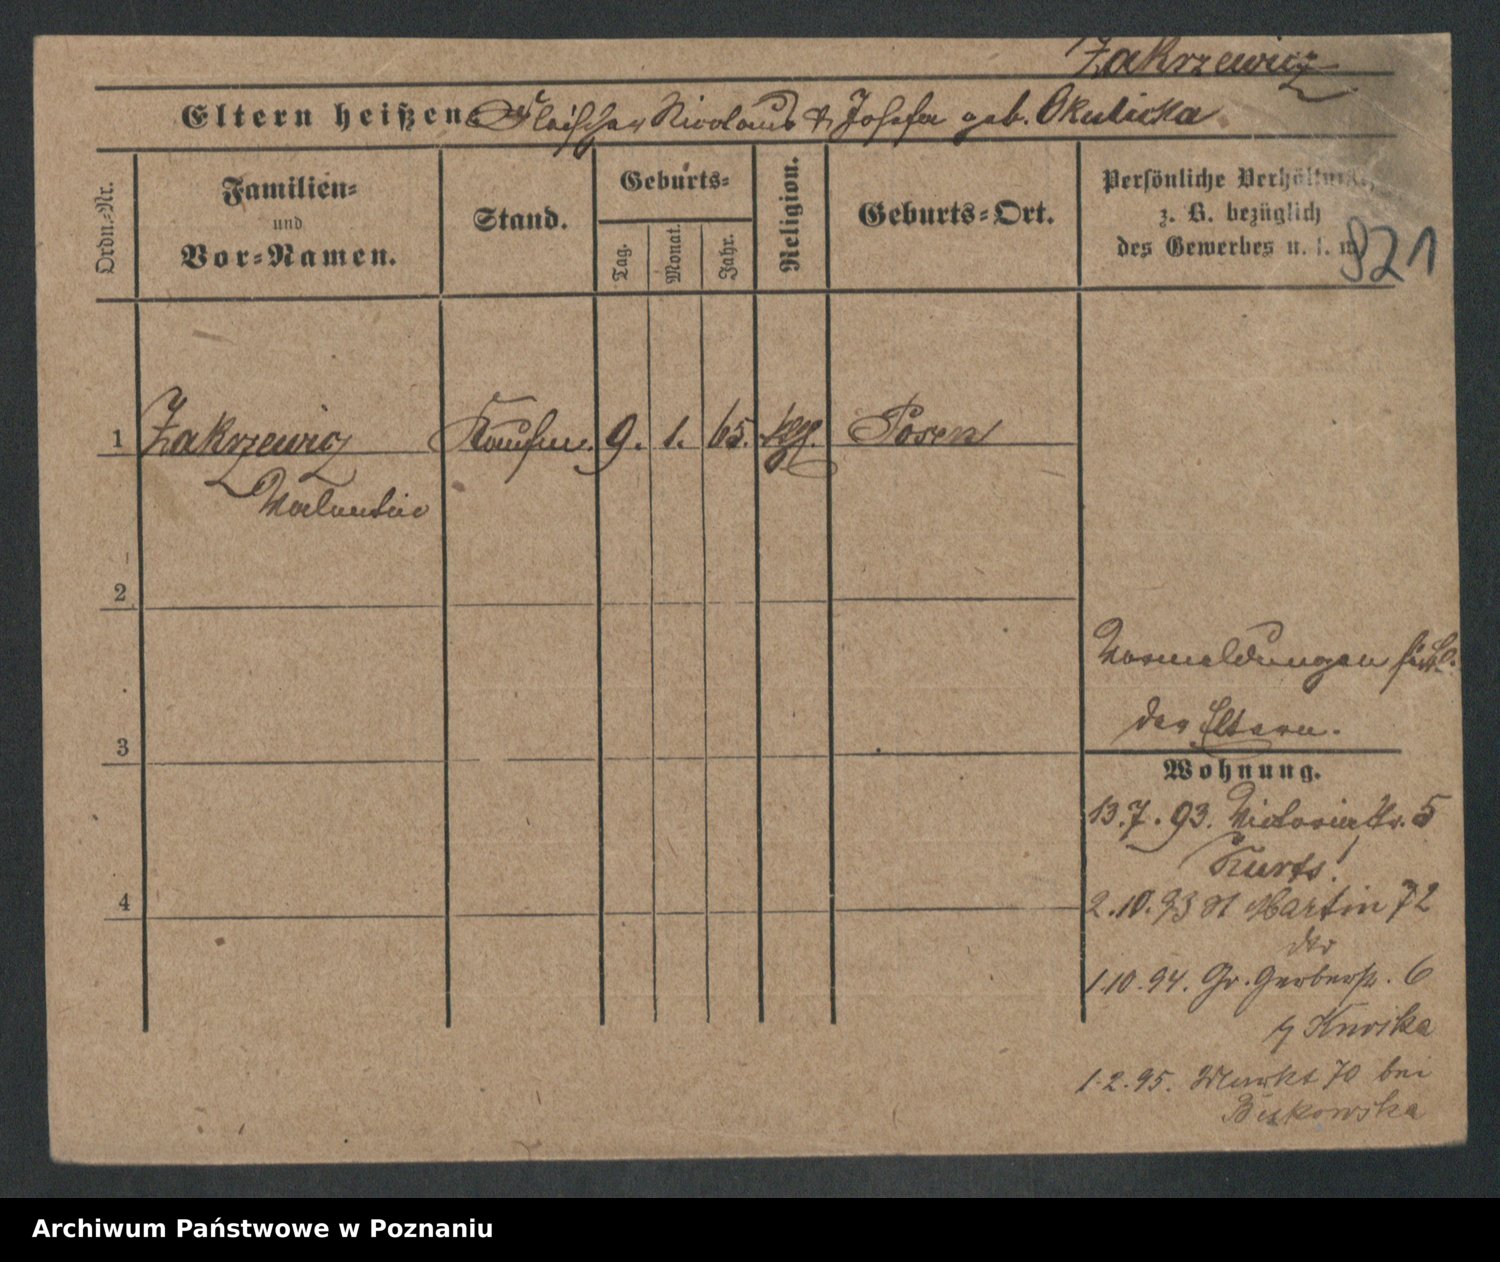 Zakrzewicz
Eltern heißen Fleischer Nicolaus & Josefa geb. Okulicka
Ordn.-Nr.
Familien-
und
Vor-Namen.
Stand.
Geburts-
Tag.
Monat.
Jahr.
Religion.
Geburts-Ort.
Persönliche Verhältnisse,
z. B. bezüglich
des Gewerbes u. s. w.
921
1 Zakrzewicz Kaufm. 9. 1. 65. kth. Posen
Valentin
2
Vormeldungen
der Eltern.
3
Wohnung.
13.7.93. Victoriastr. 5
Kurts!
4
2.10.93 St Martin 72
der
1.10.94. Gr. Gerberstr. 6
Knoska
1.2.95. Markt 70 bei
Biskowska
Archiwum Państwowe w Poznaniu